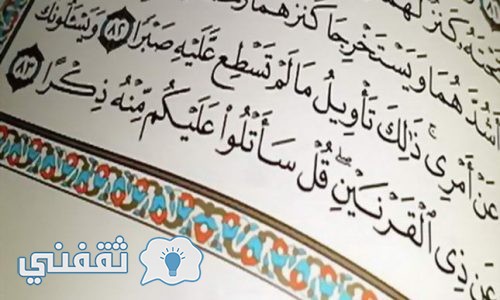 تَحْتَهُۥ كَنزٌ لَّهُمَا
أَشُدَّهُمَا وَيَسْتَخْرِجَا كَنزَهُمَا
عَنْ أَمْرِى ۚ ذَٰلِكَ تَأْوِيلُ مَا لَمْ تَسْطِع عَّلَيْهِ صَبْرًا ٨٢ وَيَسْـَٔلُونَكَ
عَن ذِى ٱلْقَرْنَيْنِ ۖ قُلْ سَأَتْلُوا۟ عَلَيْكُم مِّنْهُ ذِكْرًا ٨٣
ثقفني